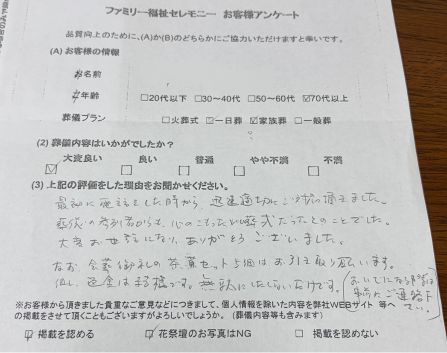 ファミリー福祉セレモニー お客様アンケート
品質向上のために、(A)か(B)のどちらかにご協力いただけますと幸いです。
(A) お客様の情報
お名前
年齢 □20代以下 □30～40代 □50～60代 ☑70代以上
葬儀プラン □火葬式 □一日葬 ☑家族葬 □一般葬
(2) 葬儀内容はいかがでしたか?
大変良い 良い 普通 やや不満 不満
☑ □ □ □ □
(3) 上記の評価をした理由をお聞かせください。
最初に電話をした時から、迅速適切にご対応頂きました。
葬儀の参列者からも、心のこもった葬式だったとのことでした。
大変お世話になり、ありがとうございました。
なお、会葬御礼の茶賞セット5個はお引き取り願います。
但し、返金は不要です。無駄にしたくないだけです。
※お客様から頂きました貴重なご意見などにつきまして、個人情報を除いた内容を弊社WEBサイト 等へ
の掲載をさせて頂くこともございますがよろしいでしょうか。(葬儀内容等も含みます)
☑ 掲載を認める ☑ 花祭壇のお写真はNG □ 掲載を認めない